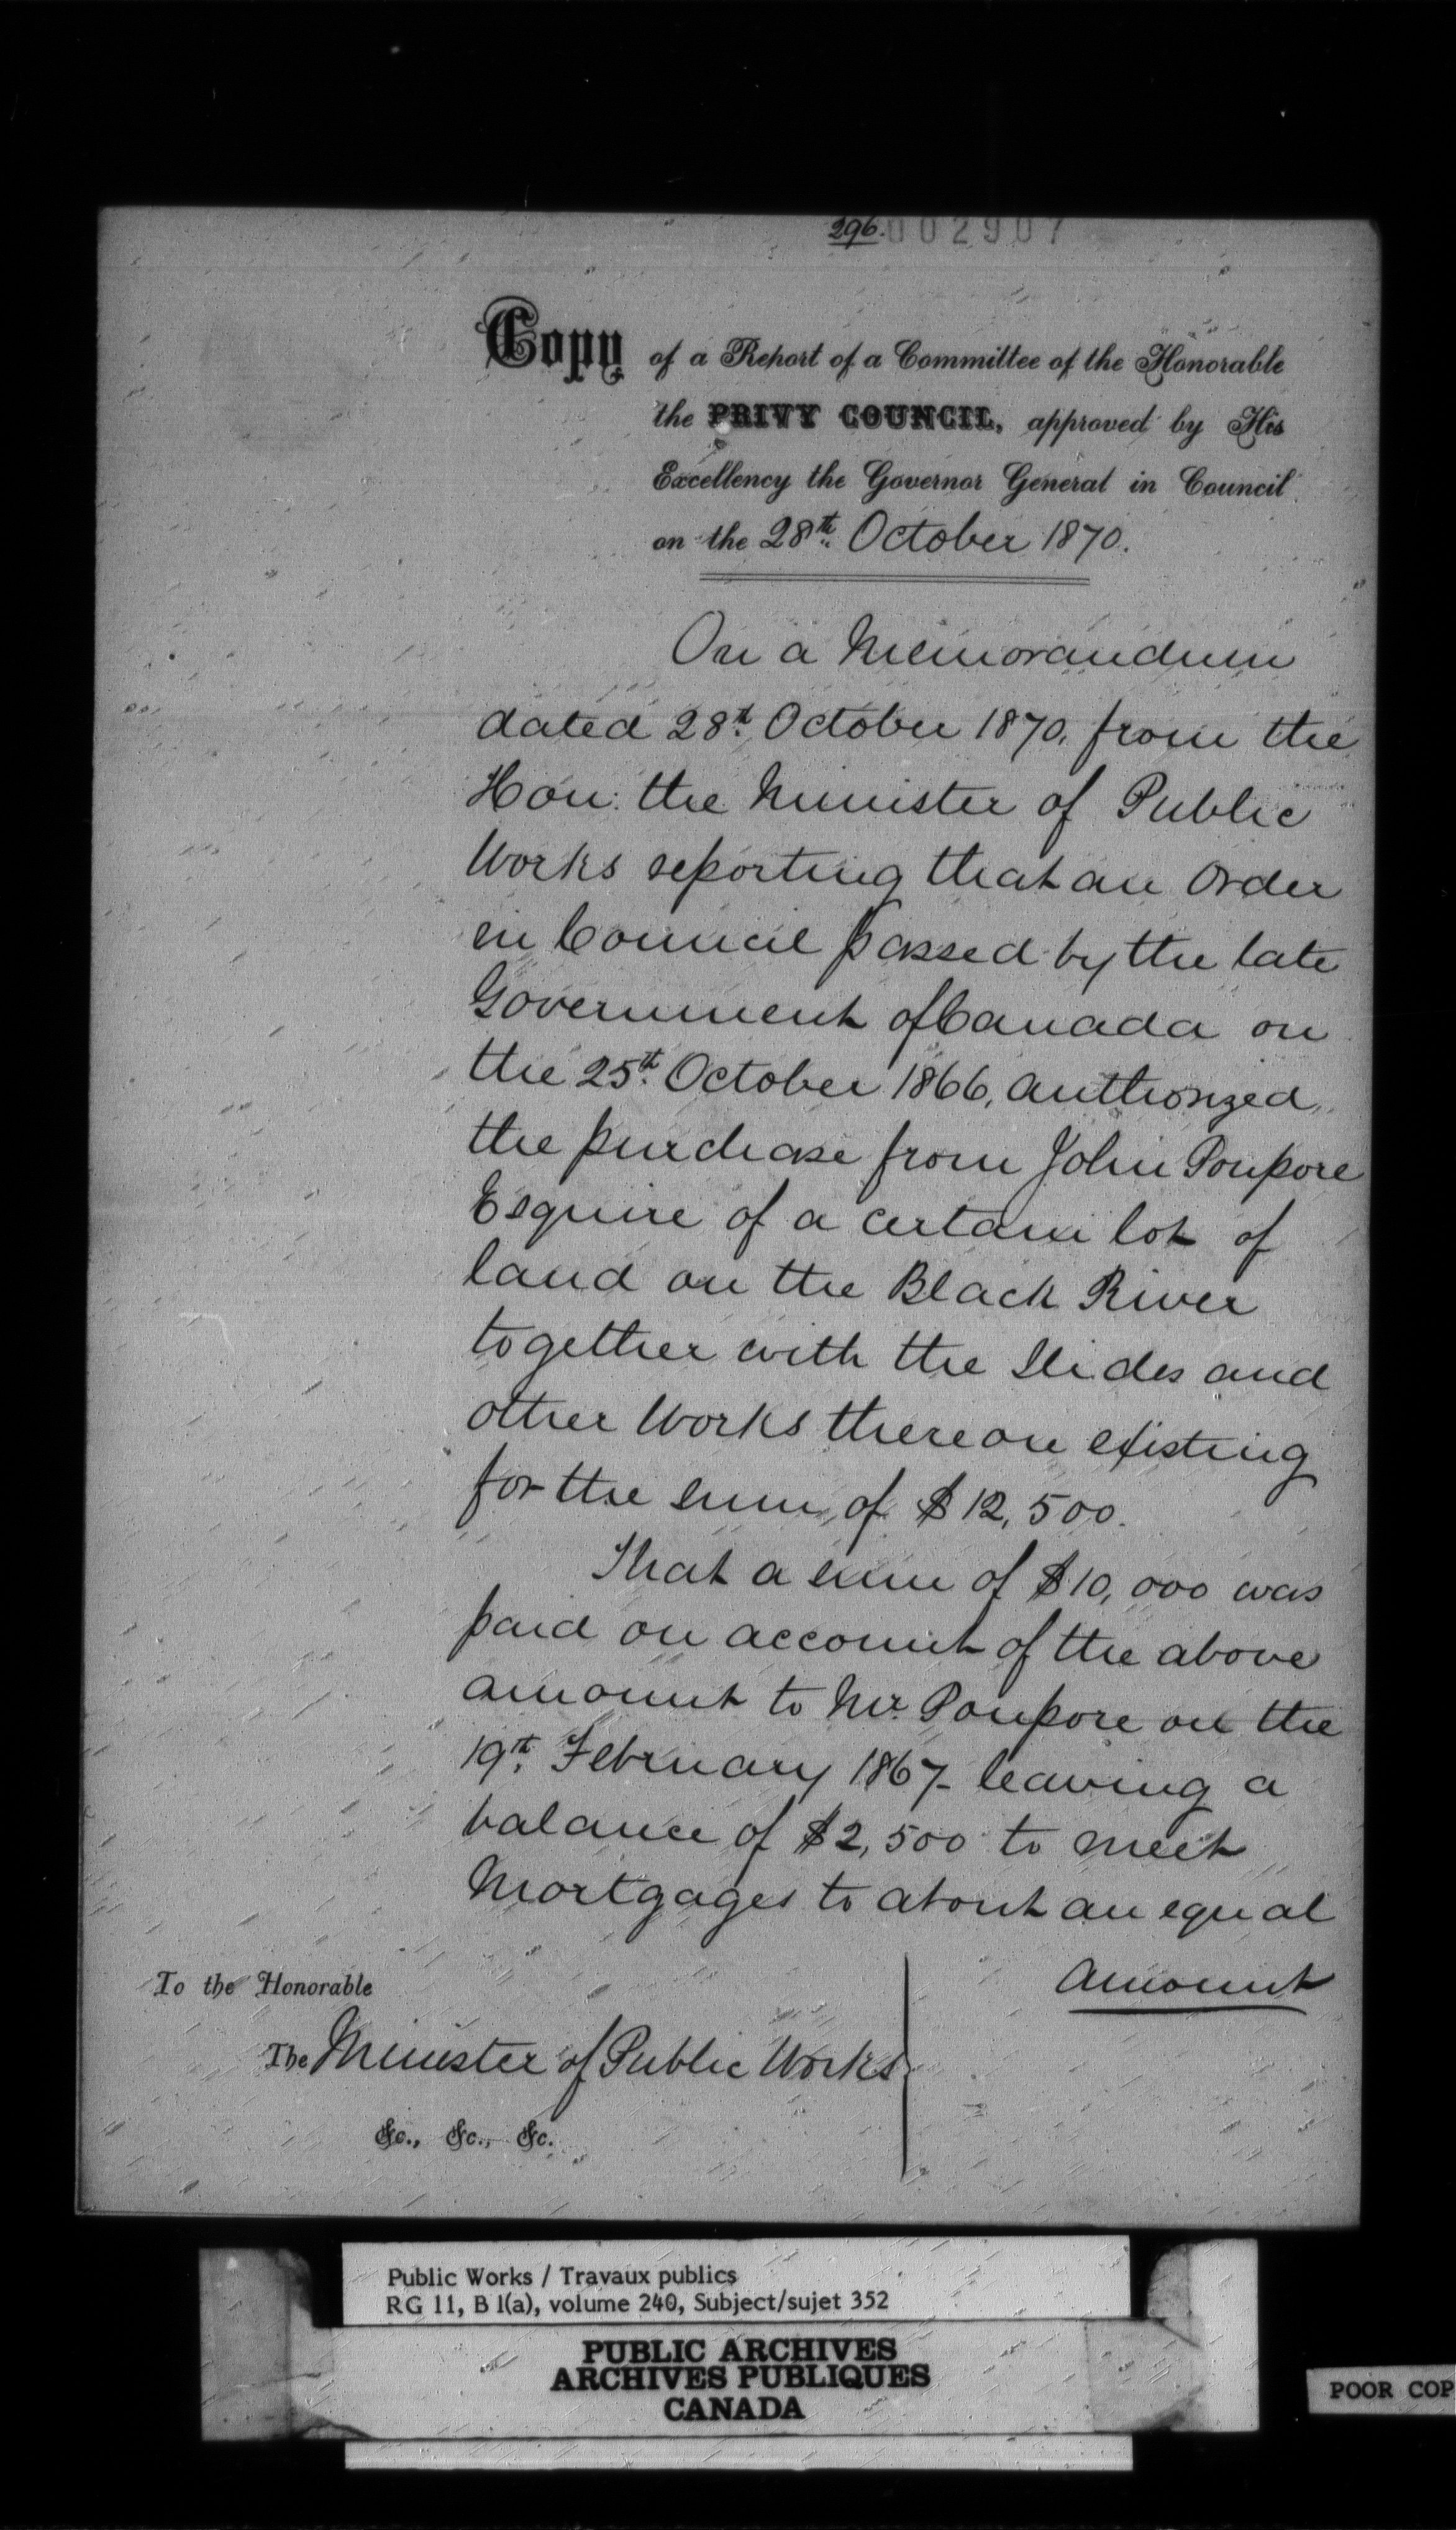 296. 002907
Copy of a Report of a Committee of the Honorable
the PRIVY COUNCIL, approved by His
Excellency the Governor General in Council
on the 28th October 1870.
On a Memorandum
dated 28th October 1870, from the
Hon: the Minister of Public
Works reporting that an Order
in Council passed by the late
Government of Canada on
the 25th October 1866, authorized
the purchase from John Poupore
Esquire of a certain lot of
land on the Black River
together with the Slides and
other Works thereon existing
for the sum of $12,500.
That a sum of $10,000 was
paid on account of the above
amount to Mr. Poupore on the
19th February 1867 - leaving a
balance of $2,500 to meet
Mortgages to about an equal
amount
To the Honorable
The Minister of Public Works
&c., &c., &c.
Public Works / Travaux publics
RG 11, B 1(a), volume 240, Subject/sujet 352
PUBLIC ARCHIVES
ARCHIVES PUBLIQUES
CANADA
POOR COP